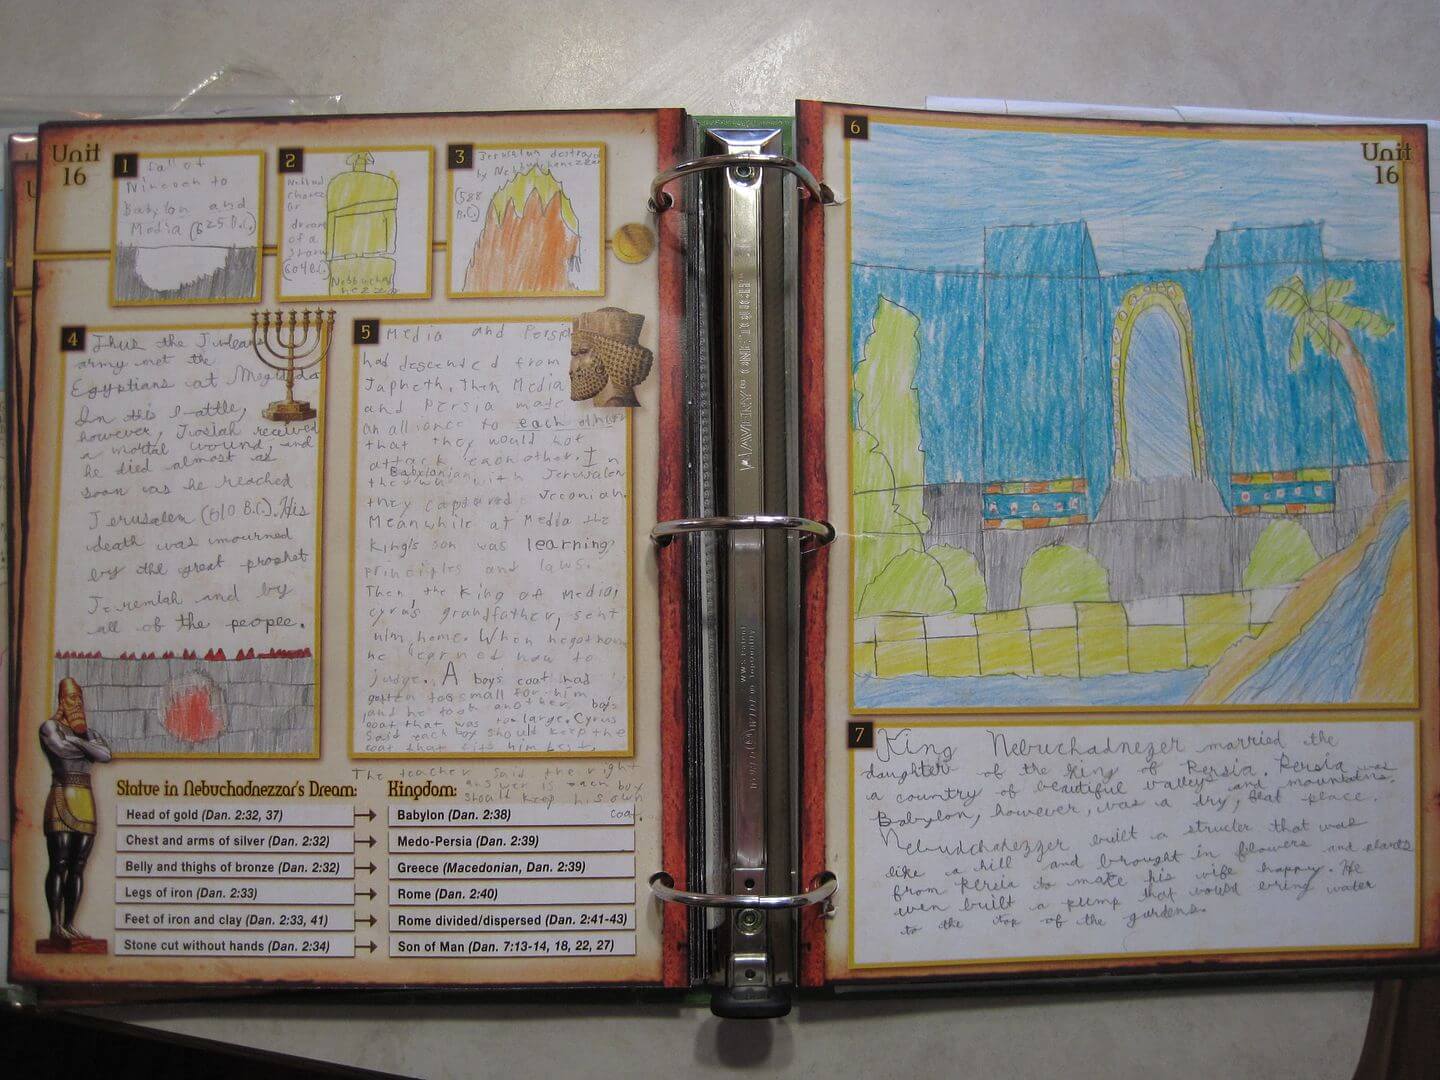 Unit
16
1
fall of
Ninevah to
Babylon and
Media (625 B.C.)
2
dream
of a
(604 B.C.)
3
Jerusalem destroyed
by
(588
B.C.)
4
Thus the Judean
army met the
Egyptians at Megiddo
In this battle,
however, Josiah received
a mortal wound, and
he died almost as
soon as he reached
Jerusalem (610 B.C.). His
death was mourned
by the great prophet
Jeremiah and by
all of the people.
5
Media and Persia
had descented from
Japheth. Then Media
and Persia made
an alliance to each other
that they would not
attack each other. In
Babylonian
the war with Jerusalem
they captured Jeconiah.
Meanwhile at Media the
king's son was learning
principles and laws.
Then the king of Media,
Cyrus grandfather, sent
him home. When he got home
he learned how to
judge. A boys coat had
gotten too small for him
and he took another boys
coat that was too large. Cyrus
said each boy should keep the
coat that fits him best.
The teacher said the right
answer is each boy
should keep his own
coat.
Statue in Nebuchadnezzar's Dream:
Kingdom:
Head of gold (Dan. 2:32, 37)
Babylon (Dan. 2:38)
Chest and arms of silver (Dan. 2:32)
Medo-Persia (Dan. 2:39)
Belly and thighs of bronze (Dan. 2:32)
Greece (Macedonian, Dan. 2:39)
Legs of iron (Dan. 2:33)
Rome (Dan. 2:40)
Feet of iron and clay (Dan. 2:33, 41)
Rome divided/dispersed (Dan. 2:41-43)
Stone cut without hands (Dan. 2:34)
Son of Man (Dan. 7:13-14, 18, 22, 27)
6
Unit
16
7
King Nebuchadnezer married the
daughter of the king of Persia. Persia was
a country of beautiful valleys and mountains.
Babylon, however, was a dry, flat place.
Nebuchadnezzer built a structer that was
like a hill and brought in flowers and plants
from Persia to make his wife happy. He
even built a pump that would bring water
to the top of the gardens.